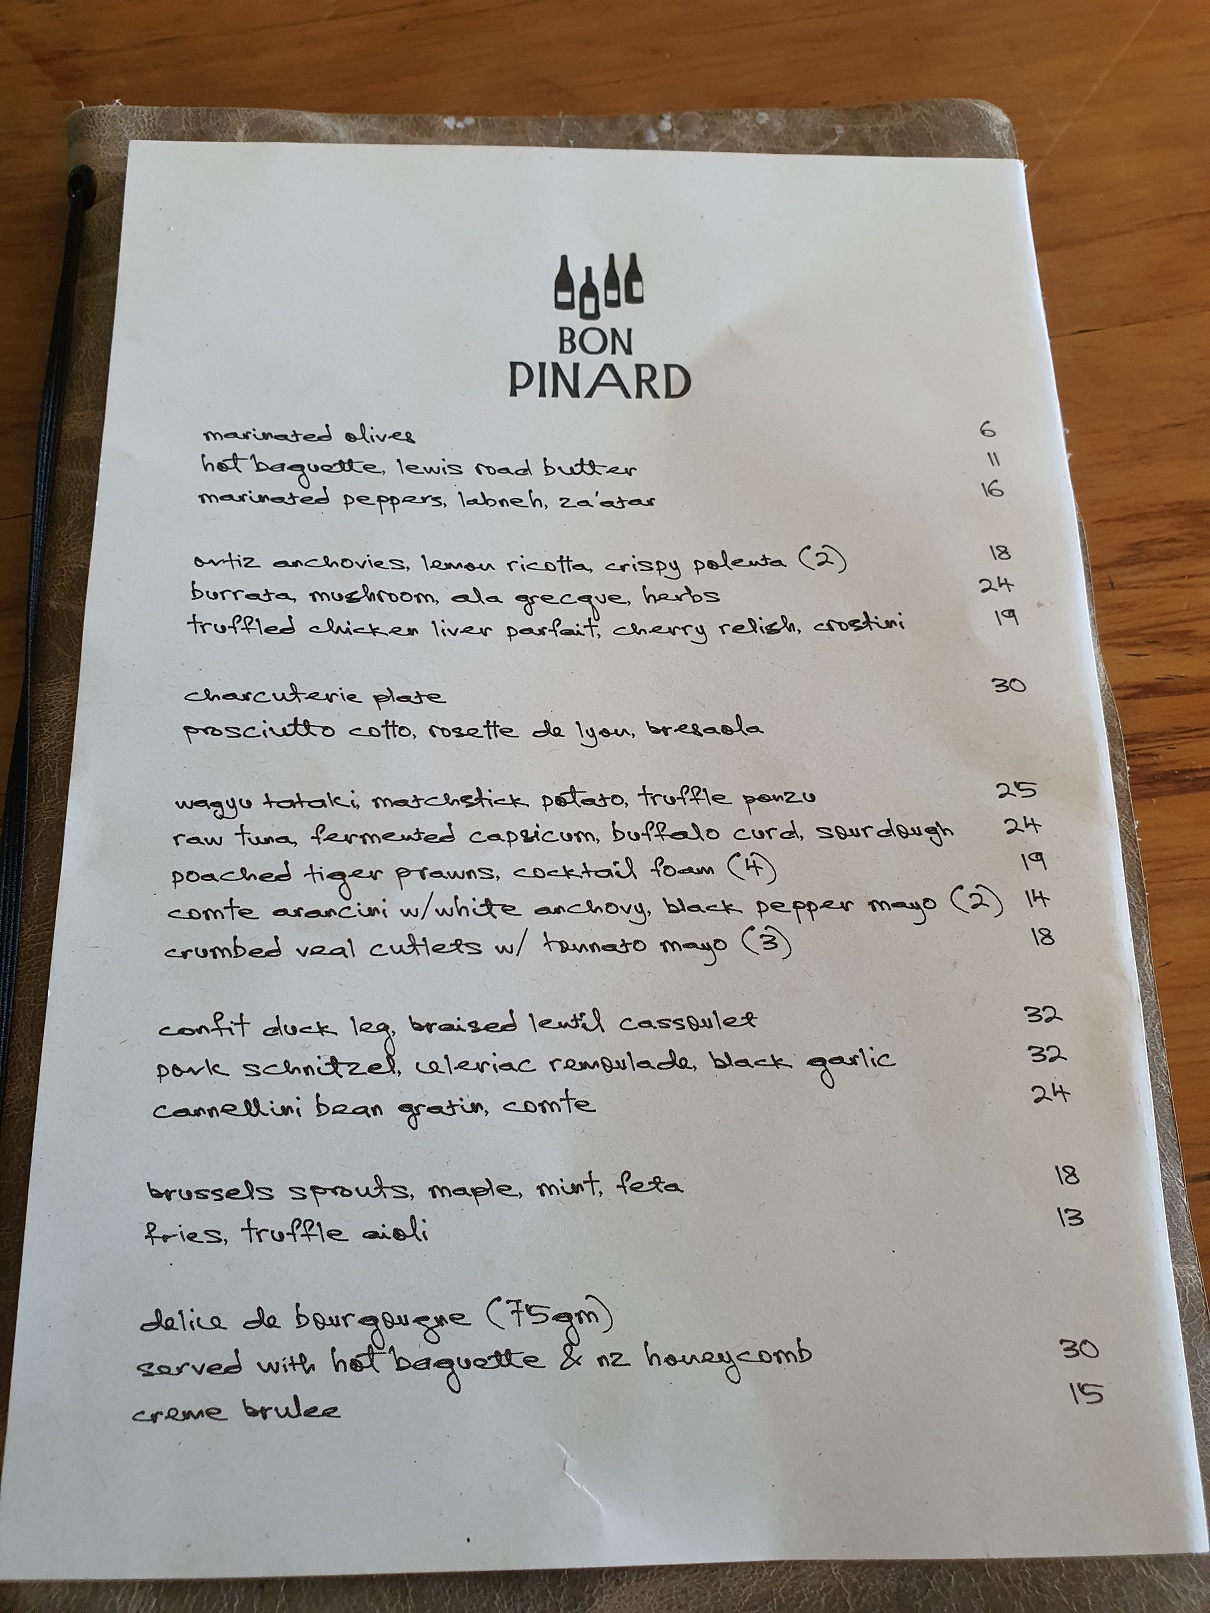 BON
PINARD
marinated olives 6
hot baguette, lewis road butter 11
marinated peppers, labneh, za'atar 16
ortiz anchovies, lemon ricotta, crispy polenta (2) 18
burrata, mushroom, ala grecque, herbs 24
truffled chicken liver parfait, cherry relish, crostini 19
charcuterie plate 30
prosciutto cotto, rosette de lyon, bresaola
wagyu tataki, matchstick potato, truffle ponzu 25
raw tuna, fermented capsicum, buffalo curd, sourdough 24
poached tiger prawns, cocktail foam (4) 19
comte arancini w/white anchovy, black pepper mayo (2) 14
crumbed veal cutlets w/ tonnato mayo (3) 18
confit duck leg, braised lentil cassoulet 32
pork schnitzel, celeriac remoulade, black garlic 32
cannellini bean gratin, comte 24
brussels sprouts, maple, mint, feta 18
fries, truffle aioli 13
delice de bourgougne (75gm)
served with hot baguette & nz honeycomb 30
creme brulee 15